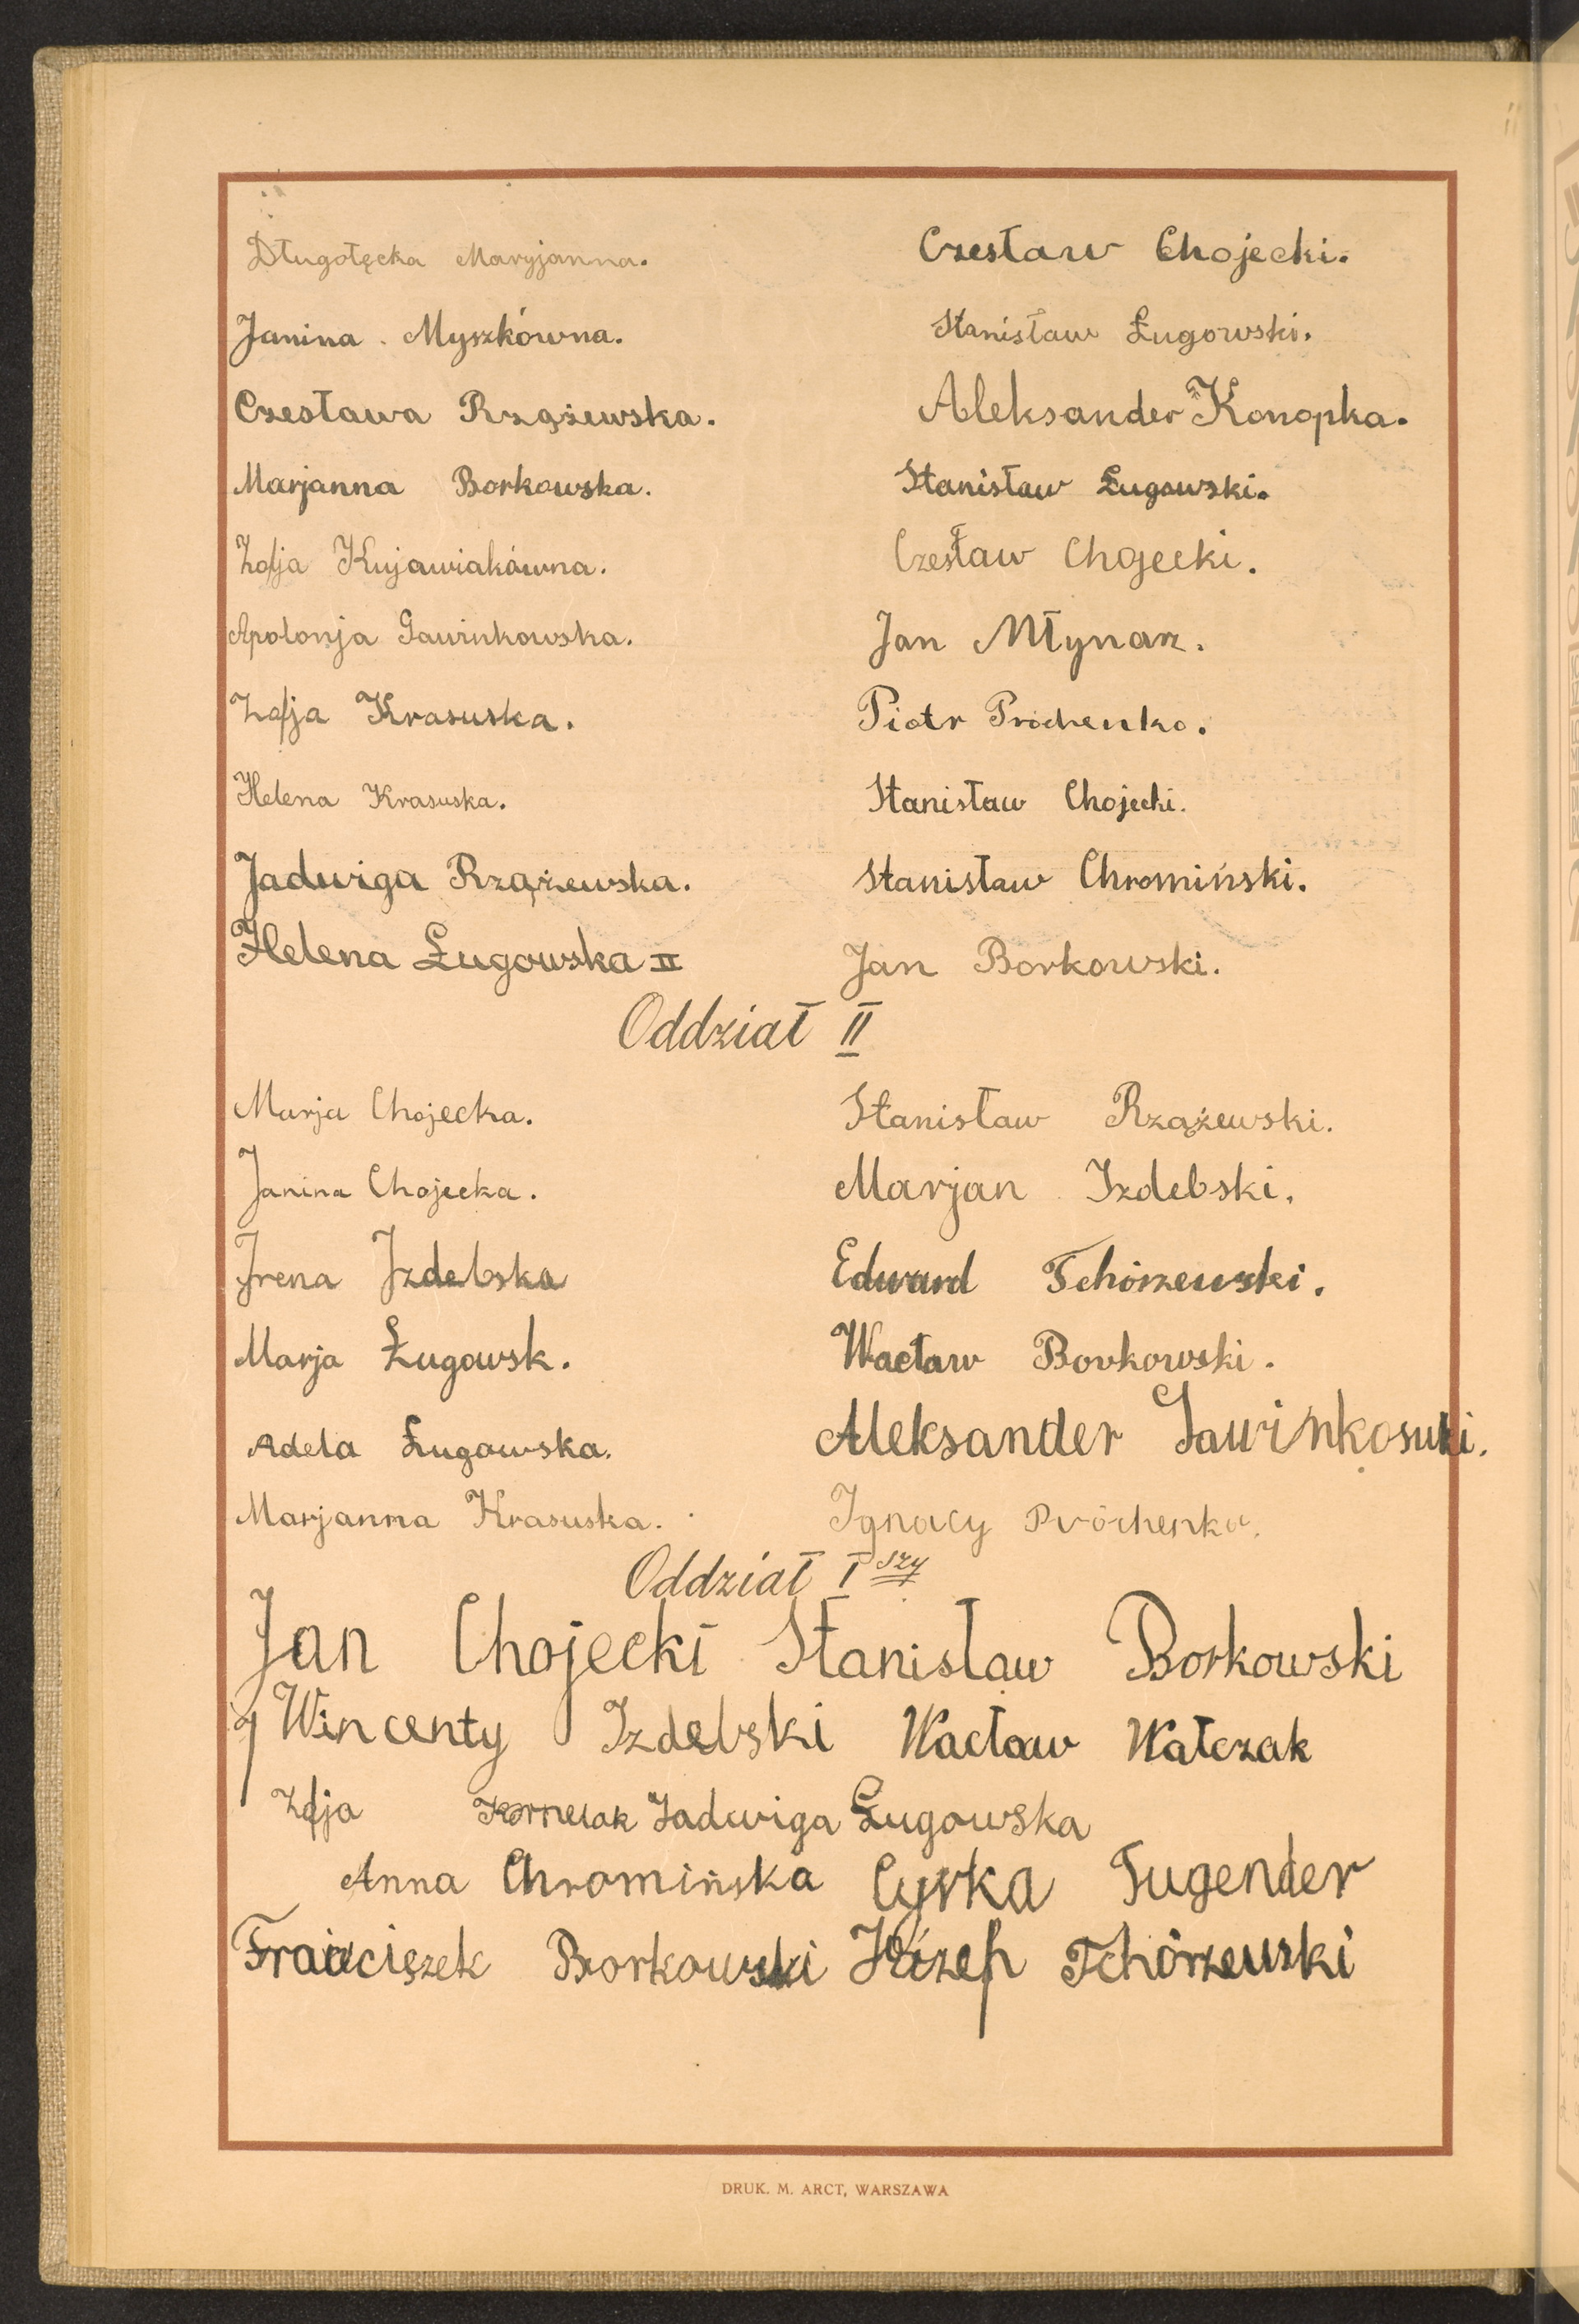 Długołęcka Maryjanna. Czesław Chojecki.
Janina Myszkówna. Stanisław Ługowski.
Czesława Rzążewska. Aleksander Konopka.
Marjanna Borkowska. Stanisław Ługowski.
Zofja Kujawiakówna. Czesław Chojecki.
Apolonja Gawinkowska. Jan Młynarz.
Zofja Krasuska. Piotr Próchenko.
Helena Krasuska. Stanisław Chojecki.
Jadwiga Rzążewska. Stanisław Chromiński.
Helena Ługowska II Jan Borkowski.
Oddział II
Marja Chojecka. Stanisław Rzążewski.
Janina Chojecka. Marjan Izdebski.
Irena Izdebska Edward Tchórzewski.
Marja Ługowsk. Wacław Borkowski.
Adela Ługowska. Aleksander Gawinkosuki.
Marjanna Krasuska. Ignacy Próchenko.
Oddział I szy
Jan Chojecki Stanisław Borkowski
Wincenty Izdebski Wacław Watczak
Zofja Kornelak Jadwiga Ługowska
Anna Chromińska Cyrka Tugender
Franciszek Borkowski Józef Tchórzewski
DRUK. M. ARCT, WARSZAWA